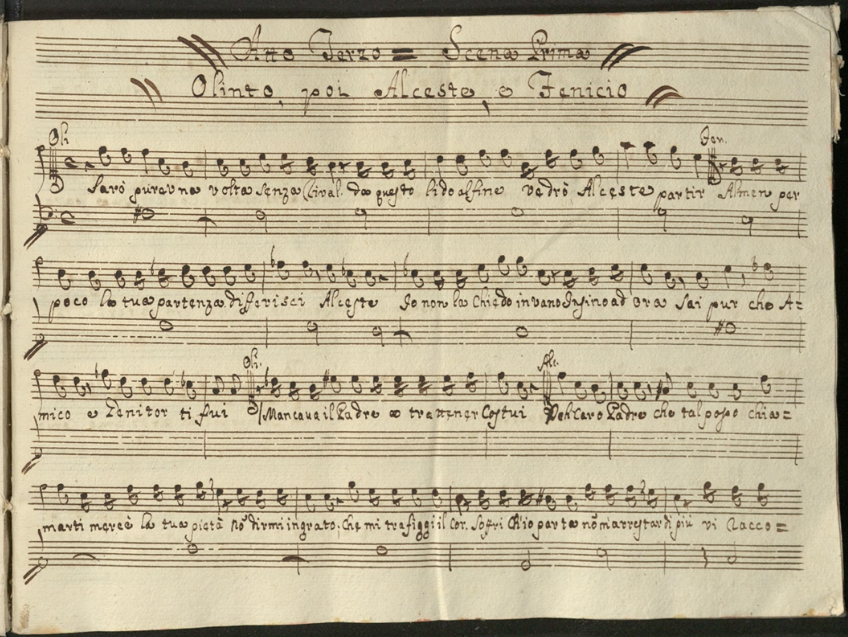 Atto Terzo = Scena Prima
Olinto, poi Alceste, e Fenicio
Oli. Fen.
Sarò pur una volta senza Rival. da questo lido alfine vedrò Alceste partir Almen per
poco la tua partenza differisci Alceste Io non la Chiedo in vano Insino ad ora Sai pur che A=
Oli. Alc.
mico e Genitor ti fui Mancava il Padre a trattener Costui Deh Caro Padre che tal posso chia=
marti mercè la tua pietà nõ dirmi ingrato; Che mi trafiggi il Cor. Soffri Ch'io parta nõ m'arrestar di più vi Racco=